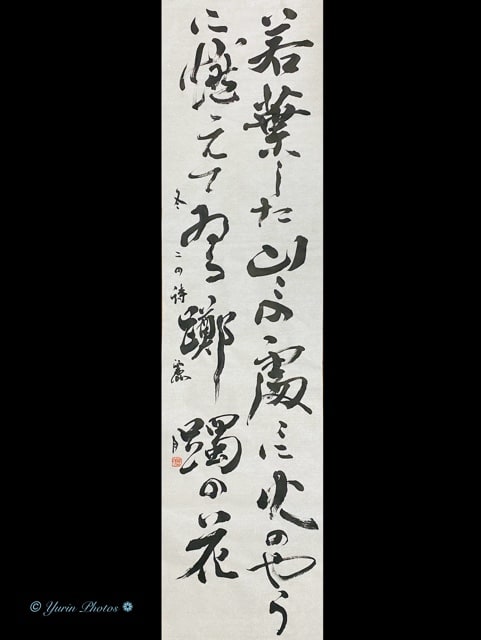 若葉した山々の處に火のやう
に燃えてゐる躑躅の花
冬二の詩
© Yurin Photos